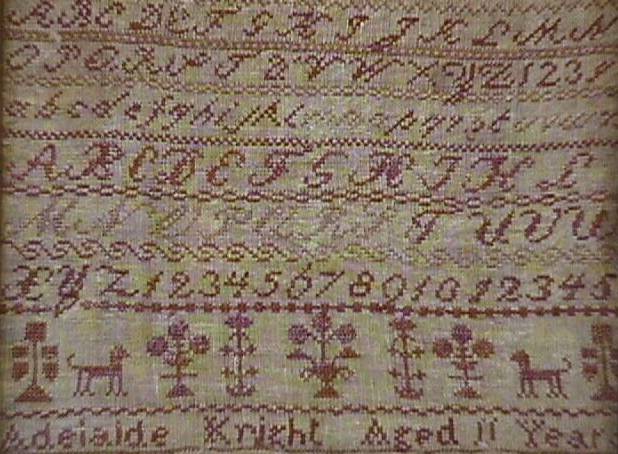 A B C D E F G H I J K L M N
O P Q R S T U V W X Y Z 1 2 3 4
a b c d e f g h i j k l
A B C D E F G H I J K L
M N T U V W
X Y Z 1 2 3 4 5 6 7 8 9 10 1 2 3 4 5
Adelaide Kright Aged 11 Years